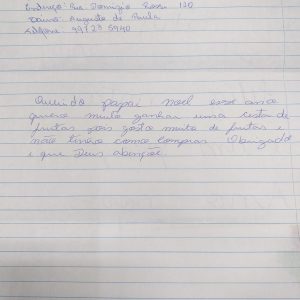 Endereço: Rua Domizio Rossi 120
Bairro: Augusto de Paula
Telefone: 99723 5940
Querido papai noel esse ano
queria muito ganhar uma cesta de
frutas pois gosto muito de frutas e
não tenho como comprar Obrigado
e que Deus abençõe.